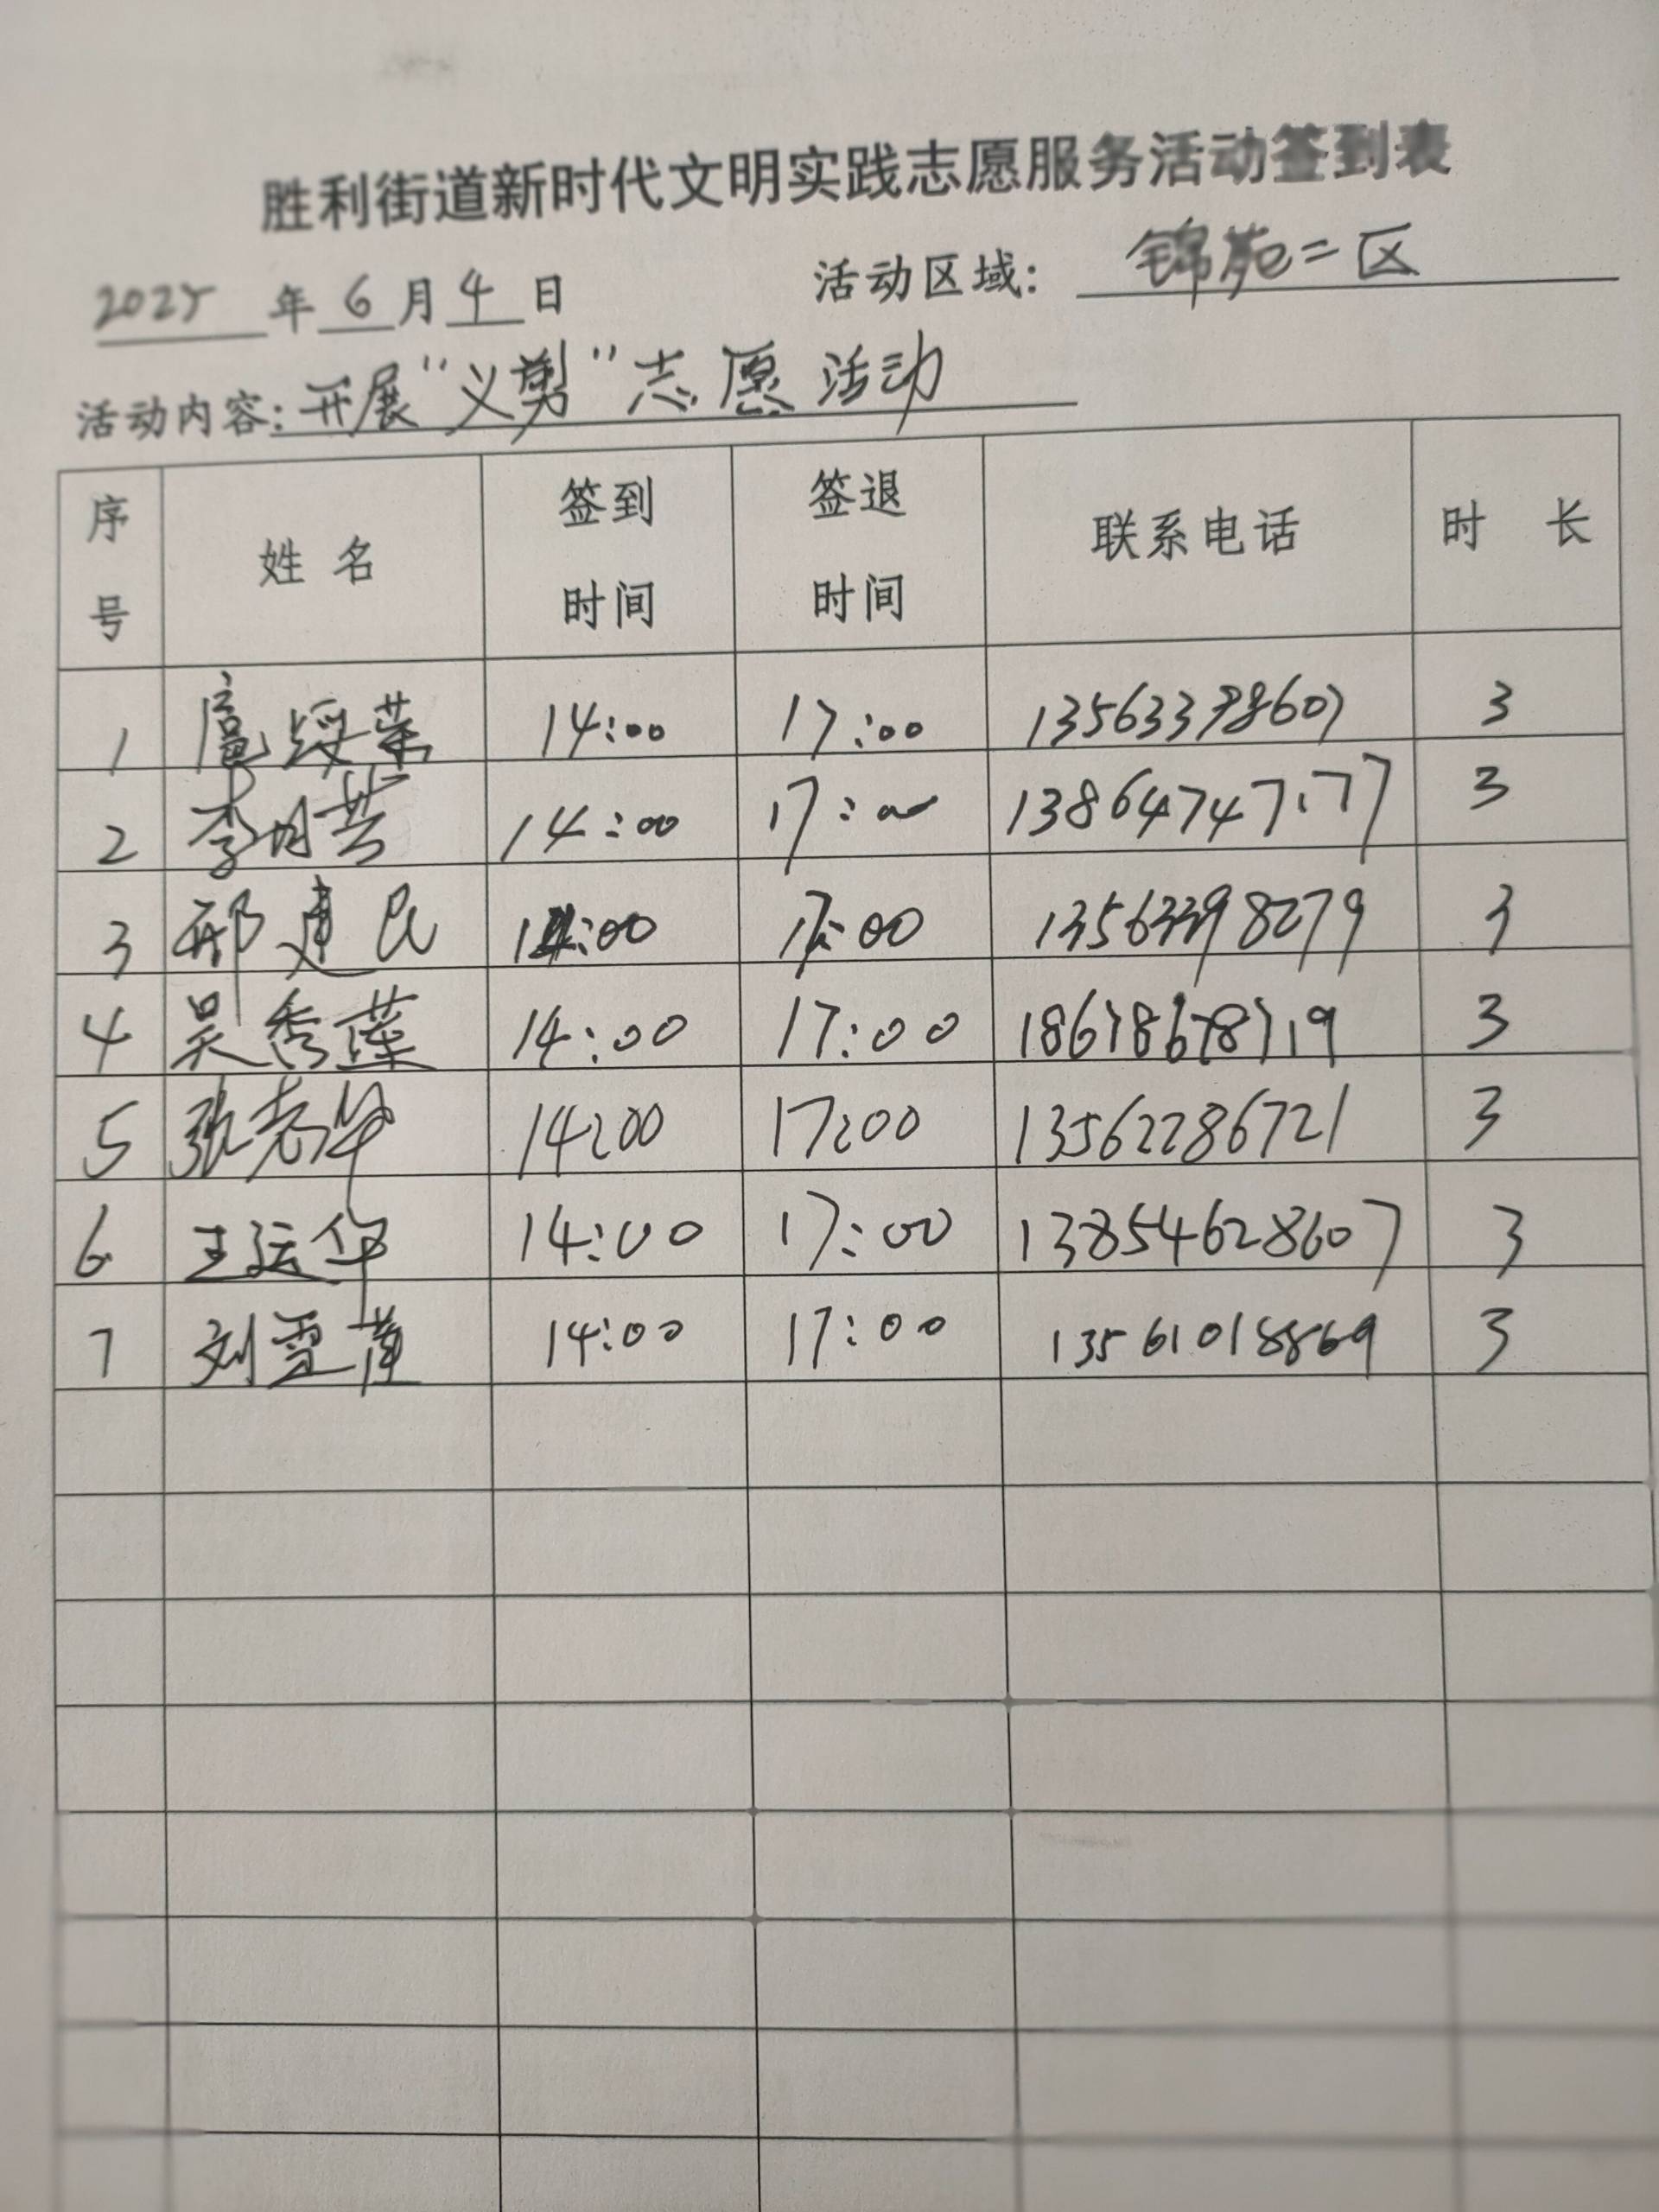 胜利街道新时代文明实践志愿服务活动签到表
2025 年 6 月 4 日 活动区域: 锦苑二区
活动内容: 开展"义剪"志愿活动
序号 姓名 签到时间 签退时间 联系电话 时长
1 扈绶荣 14:00 17:00 13563398607 3
2 李月芸 14:00 17:00 13864747177 3
3 邢建民 14:00 17:00 13563398279 3
4 吴秀莲 14:00 17:00 18678678719 3
5 张志华 14:00 17:00 13562286721 3
6 王运华 14:00 17:00 13854628607 3
7 刘雪萍 14:00 17:00 13561018869 3